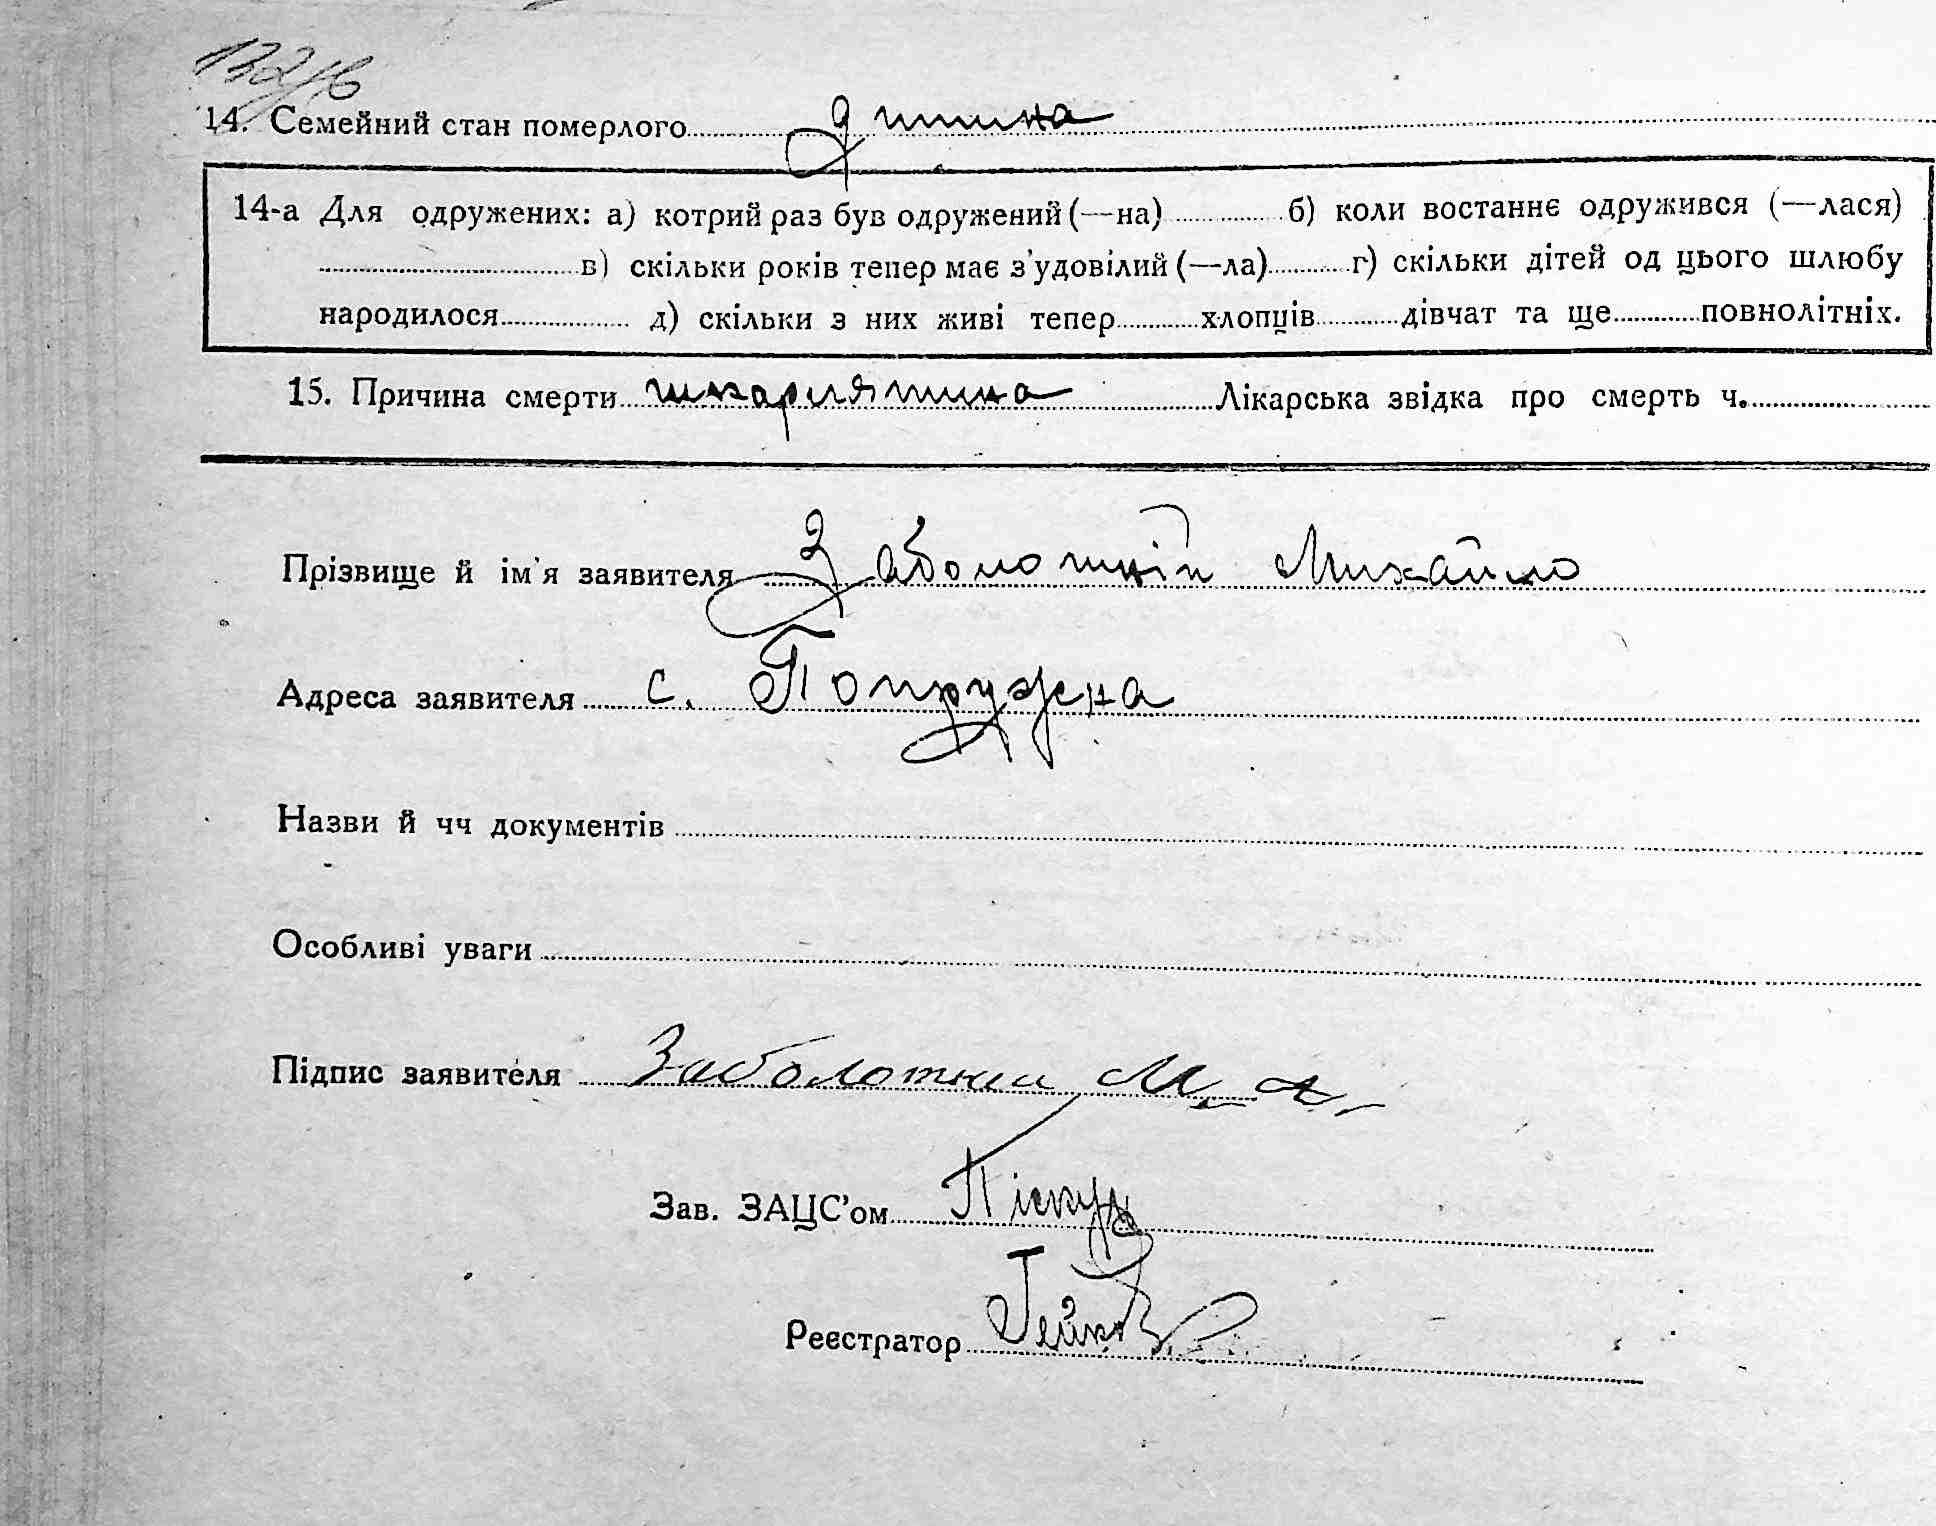 132/в
14. Семейний стан померлого дитина
14-а Для одружених: а) котрий раз був одружений (—на) б) коли востаннє одружився (—лася)
в) скільки років тепер має з'удовілий (—ла) г) скільки дітей од цього шлюбу
народилося д) скільки з них живі тепер хлопців дівчат та ще повнолітніх.
15. Причина смерти шкарлятина Лікарська звідка про смерть ч.
Прізвище й ім'я заявителя Заболотній Михайло
Адреса заявителя с. Попружна
Назви й чч документів
Особливі уваги
Підпис заявителя Заболотний М.
Зав. ЗАЦС'ом
Реєстратор